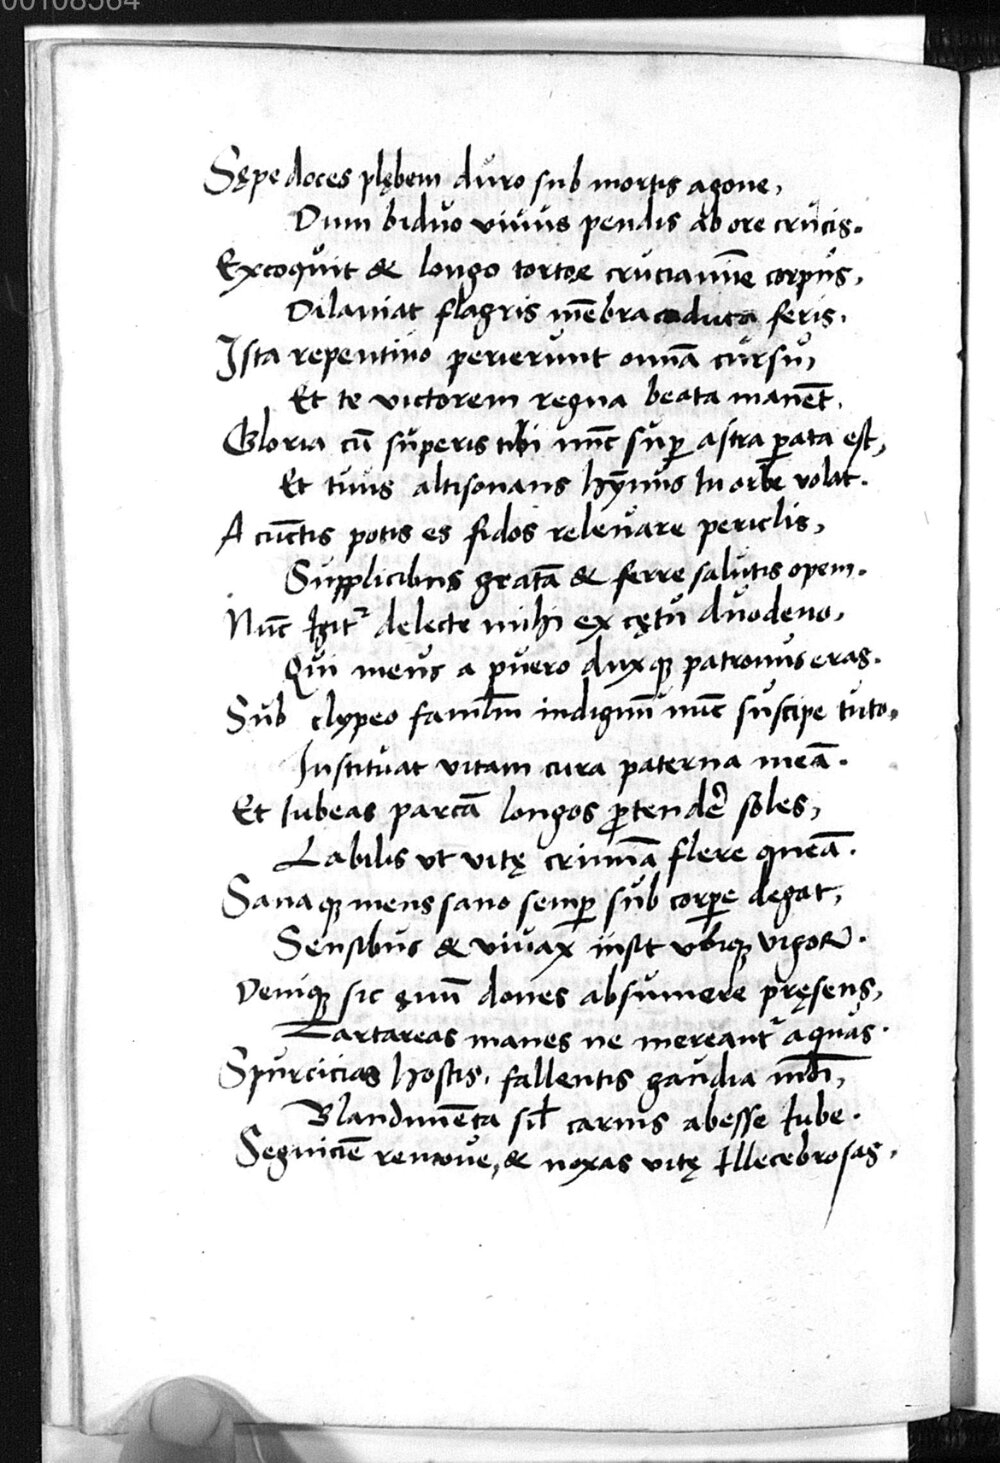 00108564
Sępe doces plębem duro sub mortis agone,
Dum biduo viuus pendis ab ore crucis.
Excoquit & longo tortor cruciamĩe corpus,
Dilaniat flagris mēbra caduca feris.
Ista repentino perierunt omīa cursu,
Et te victorem regna beata manēt.
Gloria cū superis tibi nūc suꝑ astra ꝑata est,
Et tuus altisonans hȳnus In orbe volat.
A cūctis potis es fidos releuare periclis,
Supplicibus gratā & ferre salutis opem.
Nūc Igit᷑ delecte mihi ex cętu duodeno,
Qui meus a puero duxqꝫ patronus eras.
Sub clypeo famulū indignū nūc suscipe tuto,
Instituat vitam cura paterna meā.
Et Iubeas parcā longos ꝓtendē soles,
Labilis vt vitę crimīa flere queā.
Sanaqꝫ mens sano semꝑ sub corꝑe degat,
Sensibus & viuax insit vbiqꝫ vigor.
Deniqꝫ sic ęuū dones absumere pręsens,
Tartareas manes ne mereant᷑ aquas.
Spurcicias hostis, fallentis gaudia mūdi,
Blandimēta sil̄ carnis abesse Iube.
Segniciē remoue, & noxas vitę Illecebrosas.